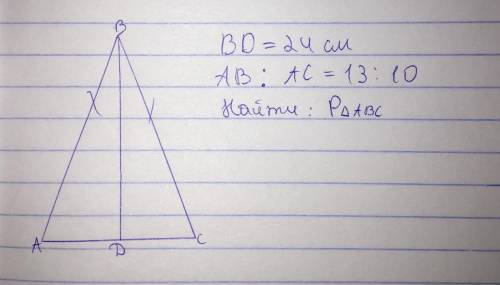 B
BD = 24 см
AB : AC = 13 : 10
Найти : P△ABC
A
D
C